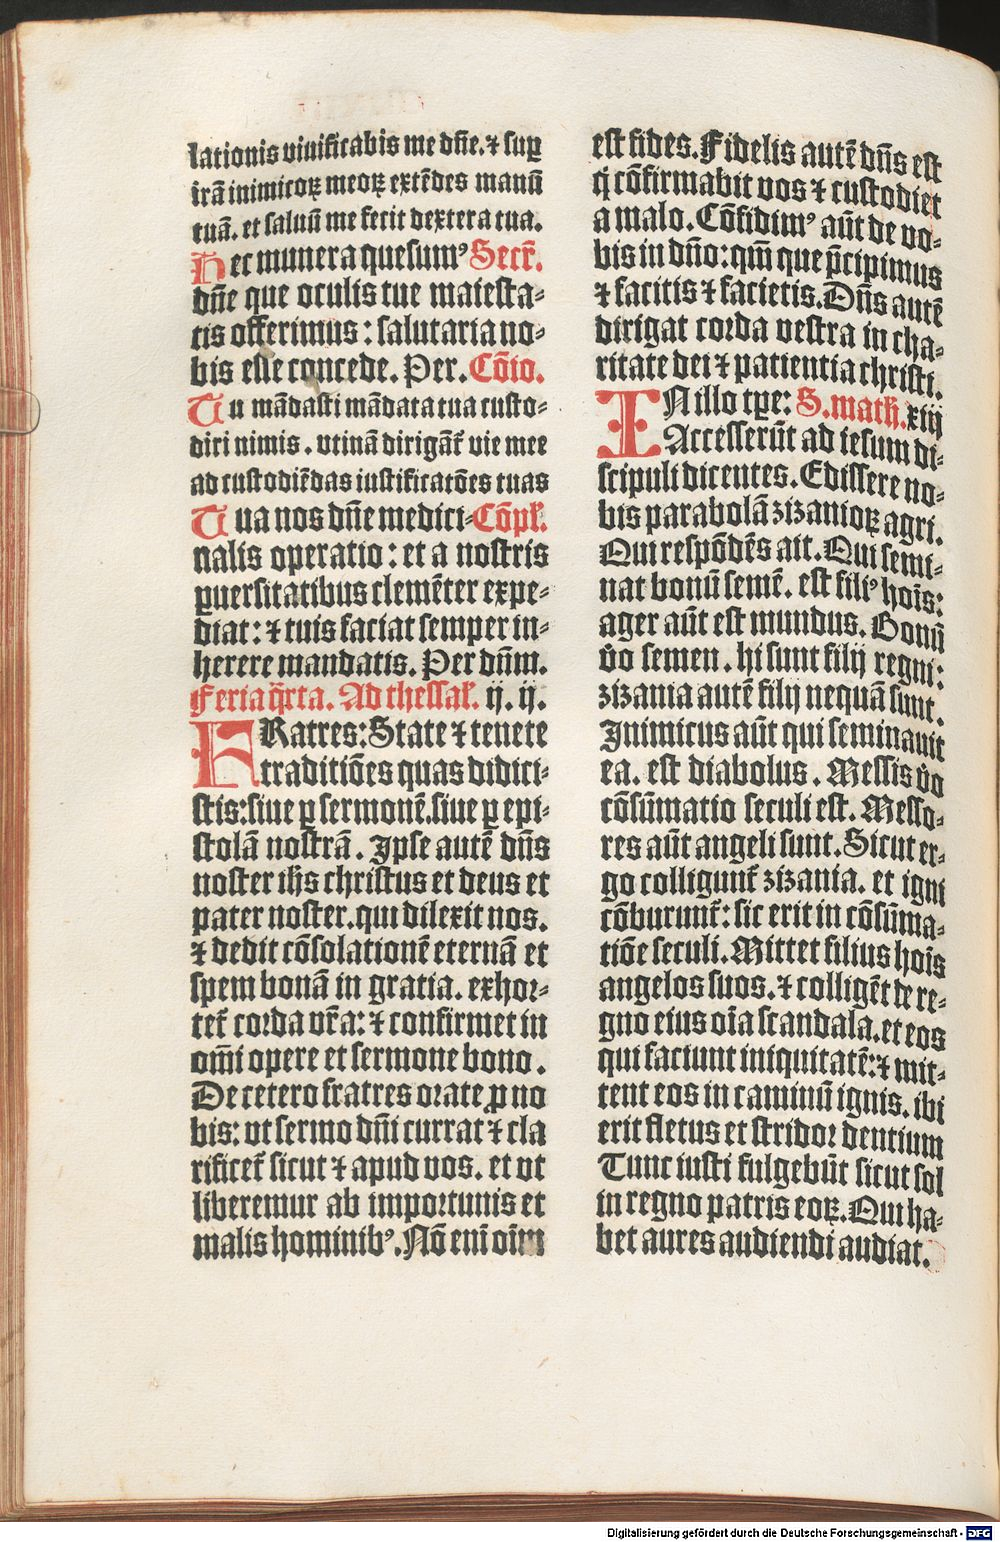 lationis viuificabis me dñe. ⁊ suꝑ
irã inimicoꝝ meoꝝ extẽdes manũ
tuã. et saluũ me fecit dextera tua.
Hec munera quesumꝰ Secr̃.
dñe que oculis tue maiesta⸗
tis offerimus: salutaria no⸗
bis esse concede. Per. Cõio.
Tu mãdasti mãdata tua custo⸗
diri nimis. vtinã dirigãt᷑ vie mee
ad custodiẽdas iustificatões tuas
Tua nos dñe medici⸗ Cõpl̃.
nalis operatio: et a nostris
ꝑuersitatibus clemẽter expe⸗
diat: ⁊ tuis faciat semper in⸗
herere mandatis. Per dñm.
Feria q̃rta. Ad thessal̃. ij. ij.
FRatres: State ⁊ tenete
traditiões quas didici⸗
stis: siue ꝑ sermonẽ. siue ꝑ epi⸗
stolã nostrã. Ipse autẽ dñs
noster ihs christus et deus et
pater noster. qui dilexit nos.
⁊ dedit cõsolationẽ eternã et
spem bonã in gratia. exhor⸗
tet᷑ corda vr̃a: ⁊ confirmet in
om̃i opere et sermone bono.
De cetero fratres orate ꝓ no
bis: vt sermo dñi currat ⁊ cla
rificet᷑ sicut ⁊ apud vos. et vt
liberemur ab importunis et
malis hominibꝰ. Nõ enĩ oĩm
est fides. Fidelis autẽ dñs est
q̃ cõfirmabit vos ⁊ custodiet
a malo. Cõfidimꝰ aũt de vo⸗
bis in dño: qm̃ que p̃cipimus
⁊ facitis ⁊ facietis. Dñs autẽ
dirigat corda vestra in cha⸗
ritate dei ⁊ patientia christi.
IN illo tꝑe: S. math. xiij
Accesserũt ad iesum di⸗
scipuli dicentes. Edissere no⸗
bis parabolã zizanioꝝ agri.
Qui respõdẽs ait. Qui semi⸗
nat bonũ semẽ. est filiꝰ hoĩs:
ager aũt est mundus. Bonũ
ṽo semen. hi sunt filij regni:
zizania autẽ filij nequã sunt.
Inimicus aũt qui seminauit
ea. est diabolus. Messis ṽo
cõsũmatio seculi est. Messo⸗
res aũt angeli sunt. Sicut er⸗
go colligunt᷑ zizania. et igni
cõburunt᷑: sic erit in cõsũma⸗
tiõe seculi. Mittet filius hoĩs
angelos suos. ⁊ colligẽt de re⸗
gno eius oĩa scandala. et eos
qui faciunt iniquitatẽ: ⁊ mit⸗
tent eos in caminũ ignis. ibi
erit fletus et stridor dentium
Tunc iusti fulgebũt sicut sol
in regno patris eoꝝ. Qui ha⸗
bet aures audiendi audiat.
Digitalisierung gefördert durch die Deutsche Forschungsgemeinschaft - DFG